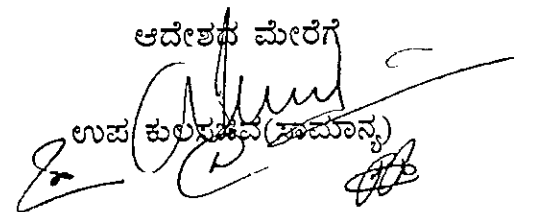 ಆದೇಶದ ಮೇರೆಗೆ
ಉಪ ಕುಲಸಚಿವ(ಸಾಮಾನ್ಯ)